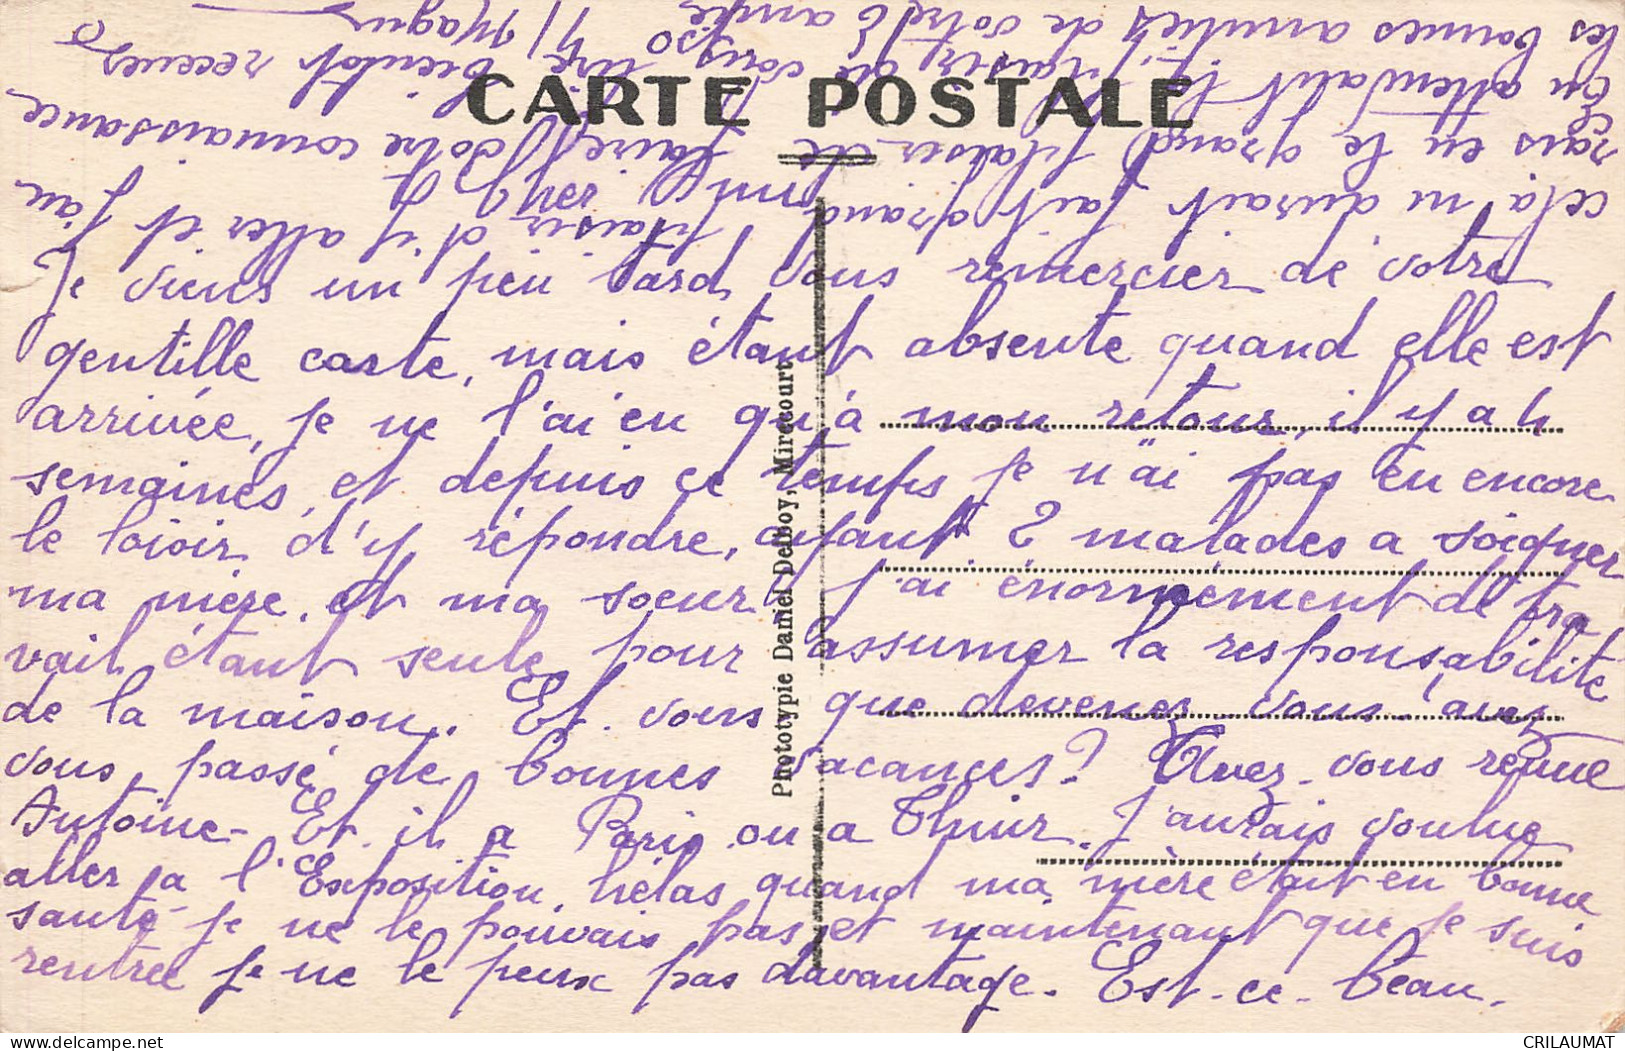 CARTE POSTALE
Cher Ami
Je viens un peu tard vous remercier de votre
gentille carte, mais étant absente quand elle est
arrivée, je ne l'ai eu qu'à mon retour, il y a 4
semaines, et depuis ce temps je n'ai pas eu encore
le loisir d'y répondre, ayant 2 malades a soigner
ma mère, et ma soeur j'ai énormément de tra
vail étant seule pour assumer la responsabilité
de la maison. Et vous que devenez-vous, avez
vous passé de bonnes vacances? Avez-vous revue
Antoine - Est-il a Paris ou a Thuir. J'aurais voulue
aller a l'Exposition, helas quand ma mère était en bonne
santé je ne le pouvais pas, et maintenant que je suis
rentrée je ne le peux pas davantage. Est-ce-beau.
cela m'aurait fait grand plaisir d'y aller et j'au
rais eu le grand plaisir de faire votre connaissance
En attendant le plaisir de vous lire, bientôt recevez
les bonnes amitiés de votre amie
Phototypie Daniel Delboy, Mirecourt
CRILAUMAT